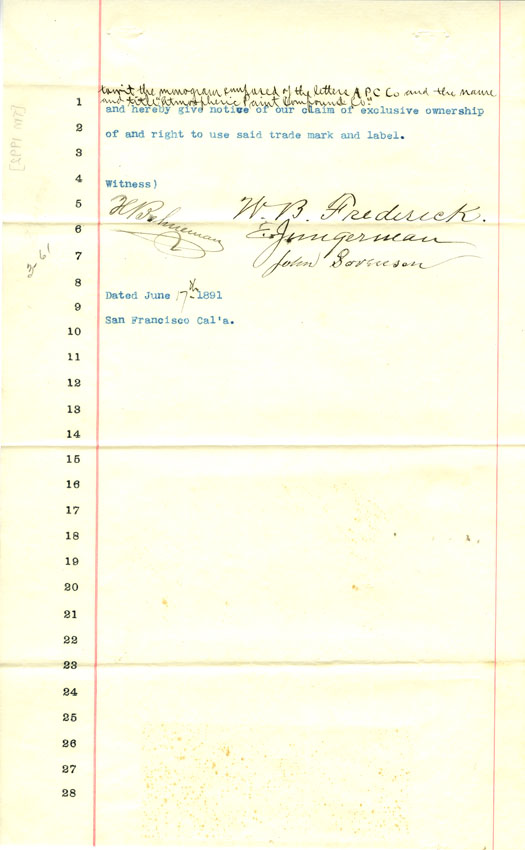 towit the monogram composed of the letters A P C Co and the name
and title "Atmospheric Paint Compound Co"
1 and hereby give notice of our claim of exclusive ownership
2 of and right to use said trade mark and label.
3
4 Witness)
5 W. B. Frederick.
6 E. Jungerman
7 John Sorenson
8
9 Dated June 17th 1891
10 San Francisco Cal'a.
11
12
13
14
15
16
17
18
19
20
21
22
23
24
25
26
27
28